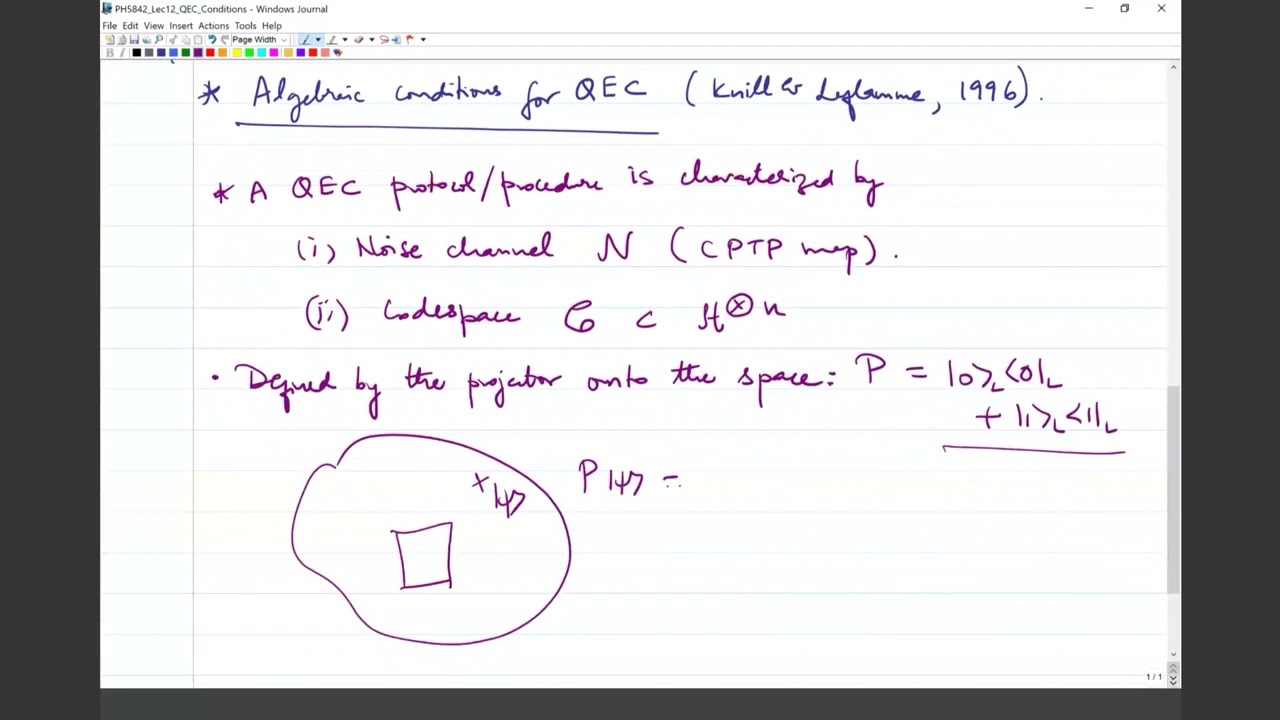 PH5842_Lec12_QEC_Conditions - Windows Journal
File Edit View Insert Actions Tools Help
Page Width
B I
* Algebraic conditions for QEC (Knill & Laflamme, 1996).
* A QEC protocol/procedure is characterized by
(i) Noise channel N (CPTP map).
(ii) Codespace C ⊂ H^⊗n
• Defined by the projector onto the space: P = |0>_L<0|_L
+ |1>_L<1|_L
x |ψ>
P|ψ> =
1 / 1